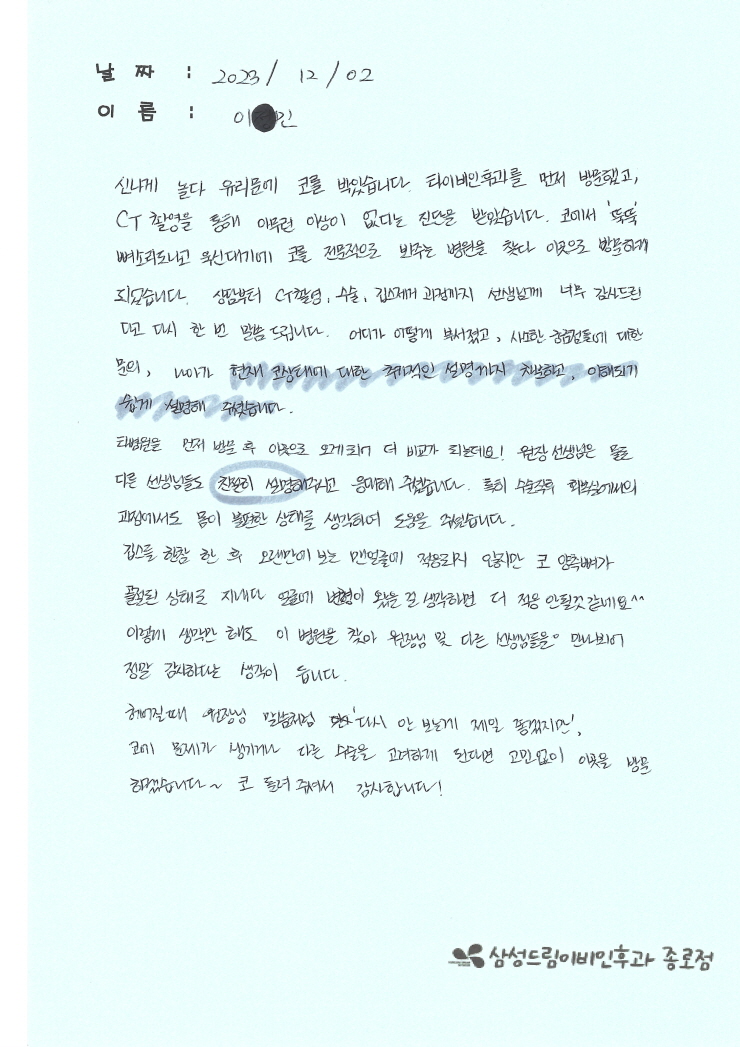 날 짜 : 2023/ 12 / 02
이 름 : 이 민
신나게 놀다 유리문에 코를 박았습니다. 타이비인후과를 먼저 방문했고,
CT 촬영을 통해 아무런 이상이 없다는 진단을 받았습니다. 코에서 '뚝뚝'
뼈소리도나고 욱신대기에 코를 전문적으로 봐주는 병원을 찾다 이곳으로 방문하게
되었습니다. 상담부터 CT촬영, 수술, 깁스제거 과정까지 선생님께 너무 감사드린
다고 다시 한 번 말씀 드립니다. 어디가 어떻게 부서졌고, 사소한 궁금점들에 대한
문의, 나아가 현재 코상태에 대한 추가적인 설명까지 친절하고, 이해되기
쉽게 설명해 주셨습니다.
타병원을 먼저 방문 후 이곳으로 오게되어 더 비교가 되는데요! 원장선생님은 물론
다른 선생님들도 친절히 설명해주시고 응대해 주셨습니다. 특히 수술직후 회복실에서의
과정에서도 몸이 불편한 상태를 생각하여 도움을 주셨습니다.
깁스를 한참 한 후 오랜만에 보는 맨얼굴에 적응되지 않지만 코 양쪽뼈가
골절된 상태로 지내다 얼굴에 변형이 왔을 걸 생각하면 더 적응 안될것 같네요^^
이렇게 생각만 해도 이 병원을 찾아 원장님 및 다른 선생님들을 만나뵈어
정말 감사하다는 생각이 듭니다.
헤어질때 원장님 말씀처럼 '다시 안 보는게 제일 좋겠지만',
코에 문제가 생기거나 다른 수술을 고려하게 된다면 고민없이 이곳을 방문
하겠습니다~ 코 돌려 주셔서 감사합니다!
삼성드림이비인후과 종로점